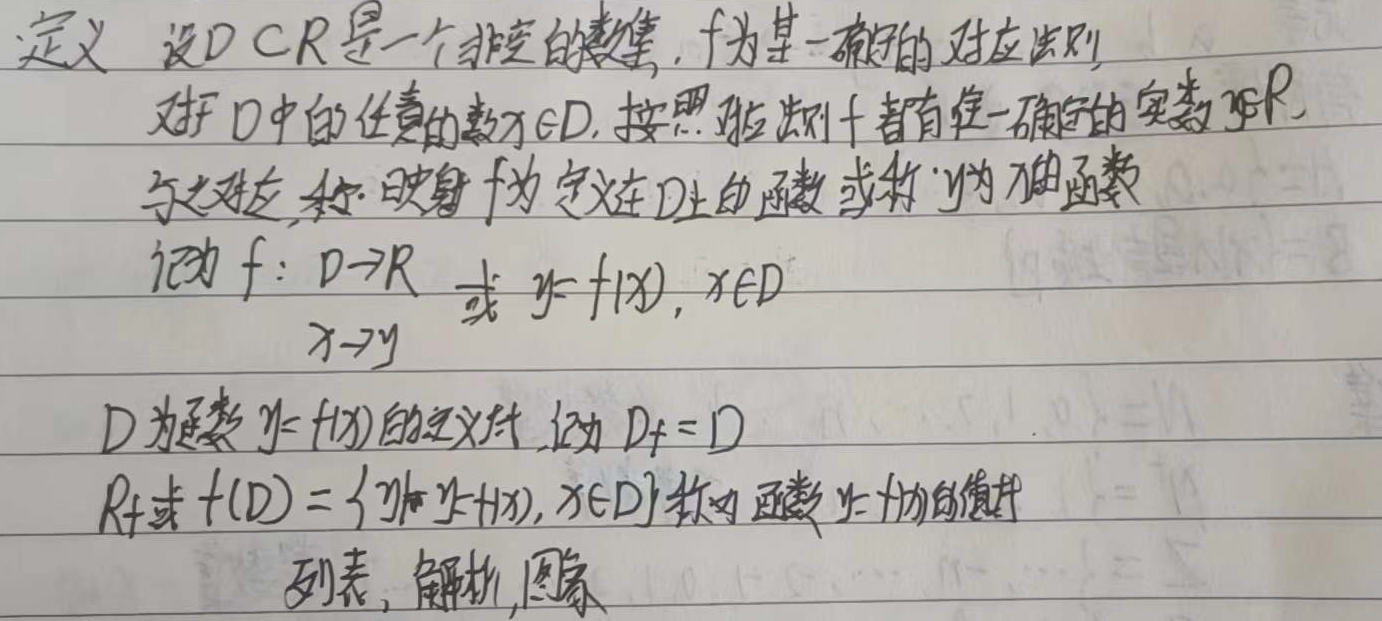 定义 设D⊂R是一个非空的数集,f为某一确定的对应法则,
对于D中的任意的数x∈D,按照对应法则f都有唯一确定的实数y∈R,
与之对应,称映射f为定义在D上的函数或称y为x的函数
记为f: D→R 或 y=f(x), x∈D
x→y
D为函数y=f(x)的定义域,记为Df=D
Rf或f(D)={y|y=f(x), x∈D}称为函数y=f(x)的值域
列表,解析,图象